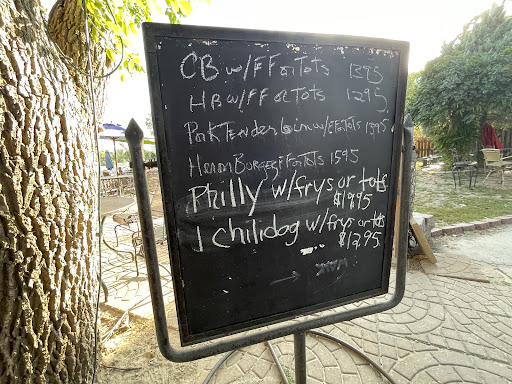 CB w/FF or Tots 1395
HB w/FF or Tots 1295
Pork Tenderloin w/FForTots 1395
HamBurger FForTots 1595
Philly w/frys or tots
$19.95
1 chilidog w/frys or tots
$12.95